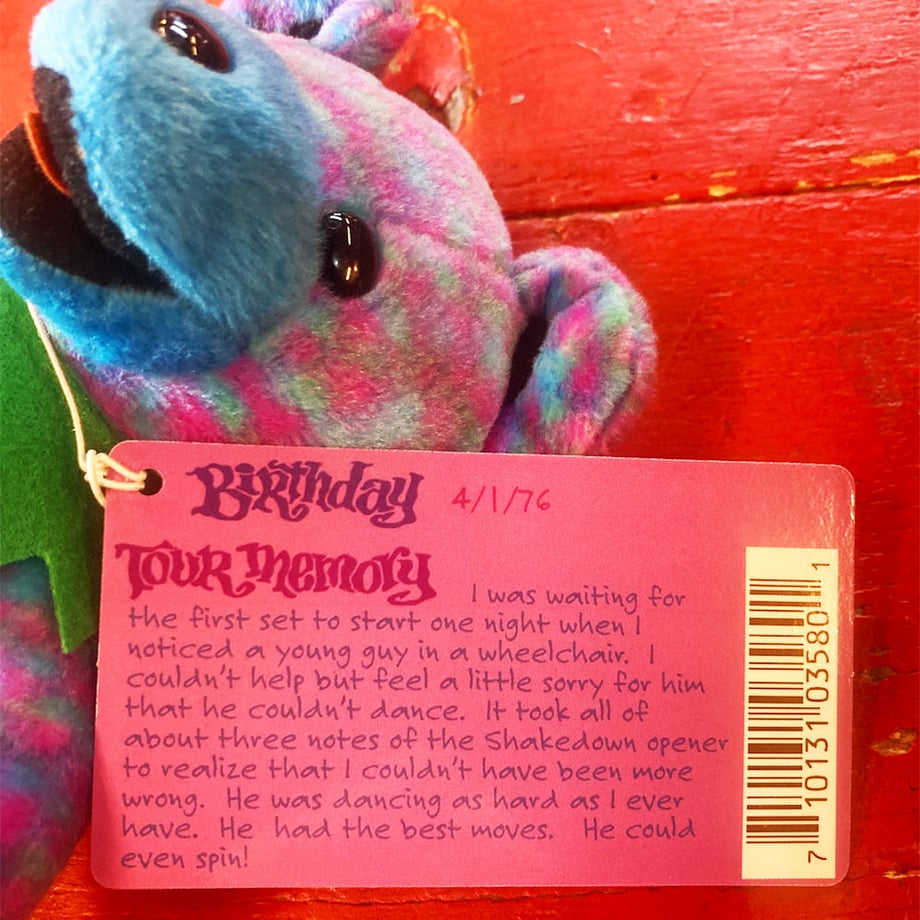 Birthday 4/1/76
Tour Memory I was waiting for
the first set to start one night when I
noticed a young guy in a wheelchair. I
couldn't help but feel a little sorry for him
that he couldn't dance. It took all of
about three notes of the Shakedown opener
to realize that I couldn't have been more
wrong. He was dancing as hard as I ever
have. He had the best moves. He could
even spin!
7 10131 03580 1